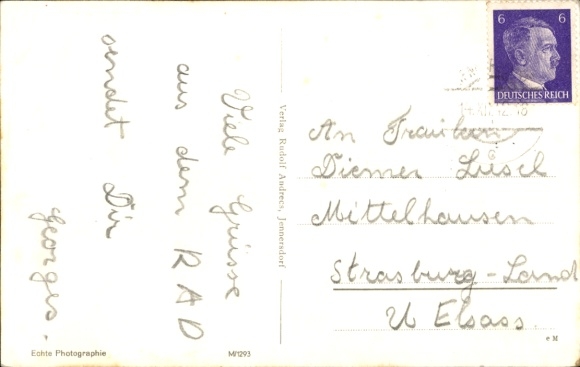 Viele Grüsse
aus dem RAD
sendet Dir
Georges.
Verlag Rudolf Andrecs, Jennersdorf
6 6
DEUTSCHES REICH
An Fräulein
Diemer Liesel
Mittelhausen
Strasburg-Land
U Elsass.
Echte Photographie
M/1293
e M